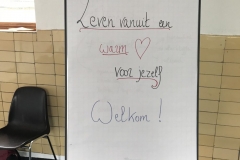 Leven vanuit een
warm ♡
voor jezelf
Welkom!